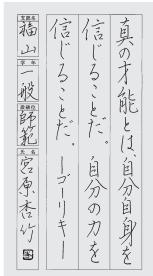 真の才能とは、自分自身を
信じることだ。自分の力を
信じることだ。―ゴーリキー
支部名
福山
学年
一般
段級位
師範
氏名
宮原杏竹